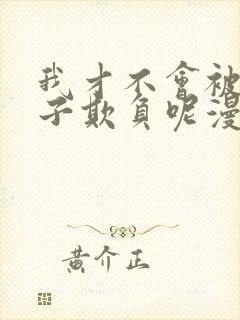 我才不會被
子欺負呢漫
黃介正